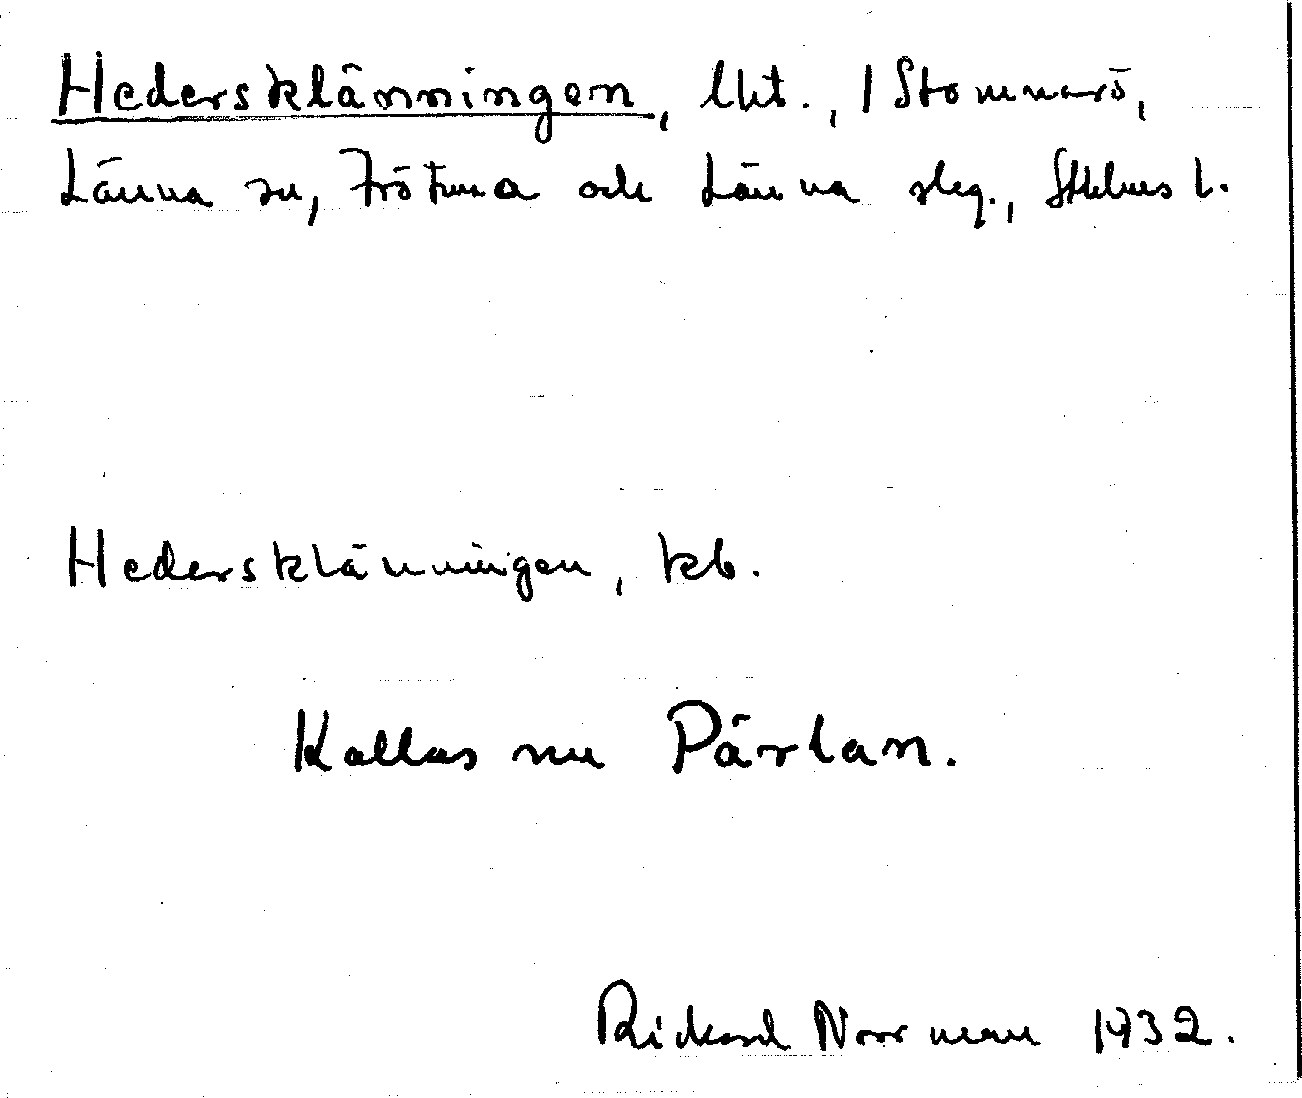 Hedersklänningen, lht., 1 Stommarö,
Länna sn, Frötuna och Länna slg., Sthlms l.
Hedersklänningen, kb.
Kallas nu Pärlan.
Rickard Norrman 1932.